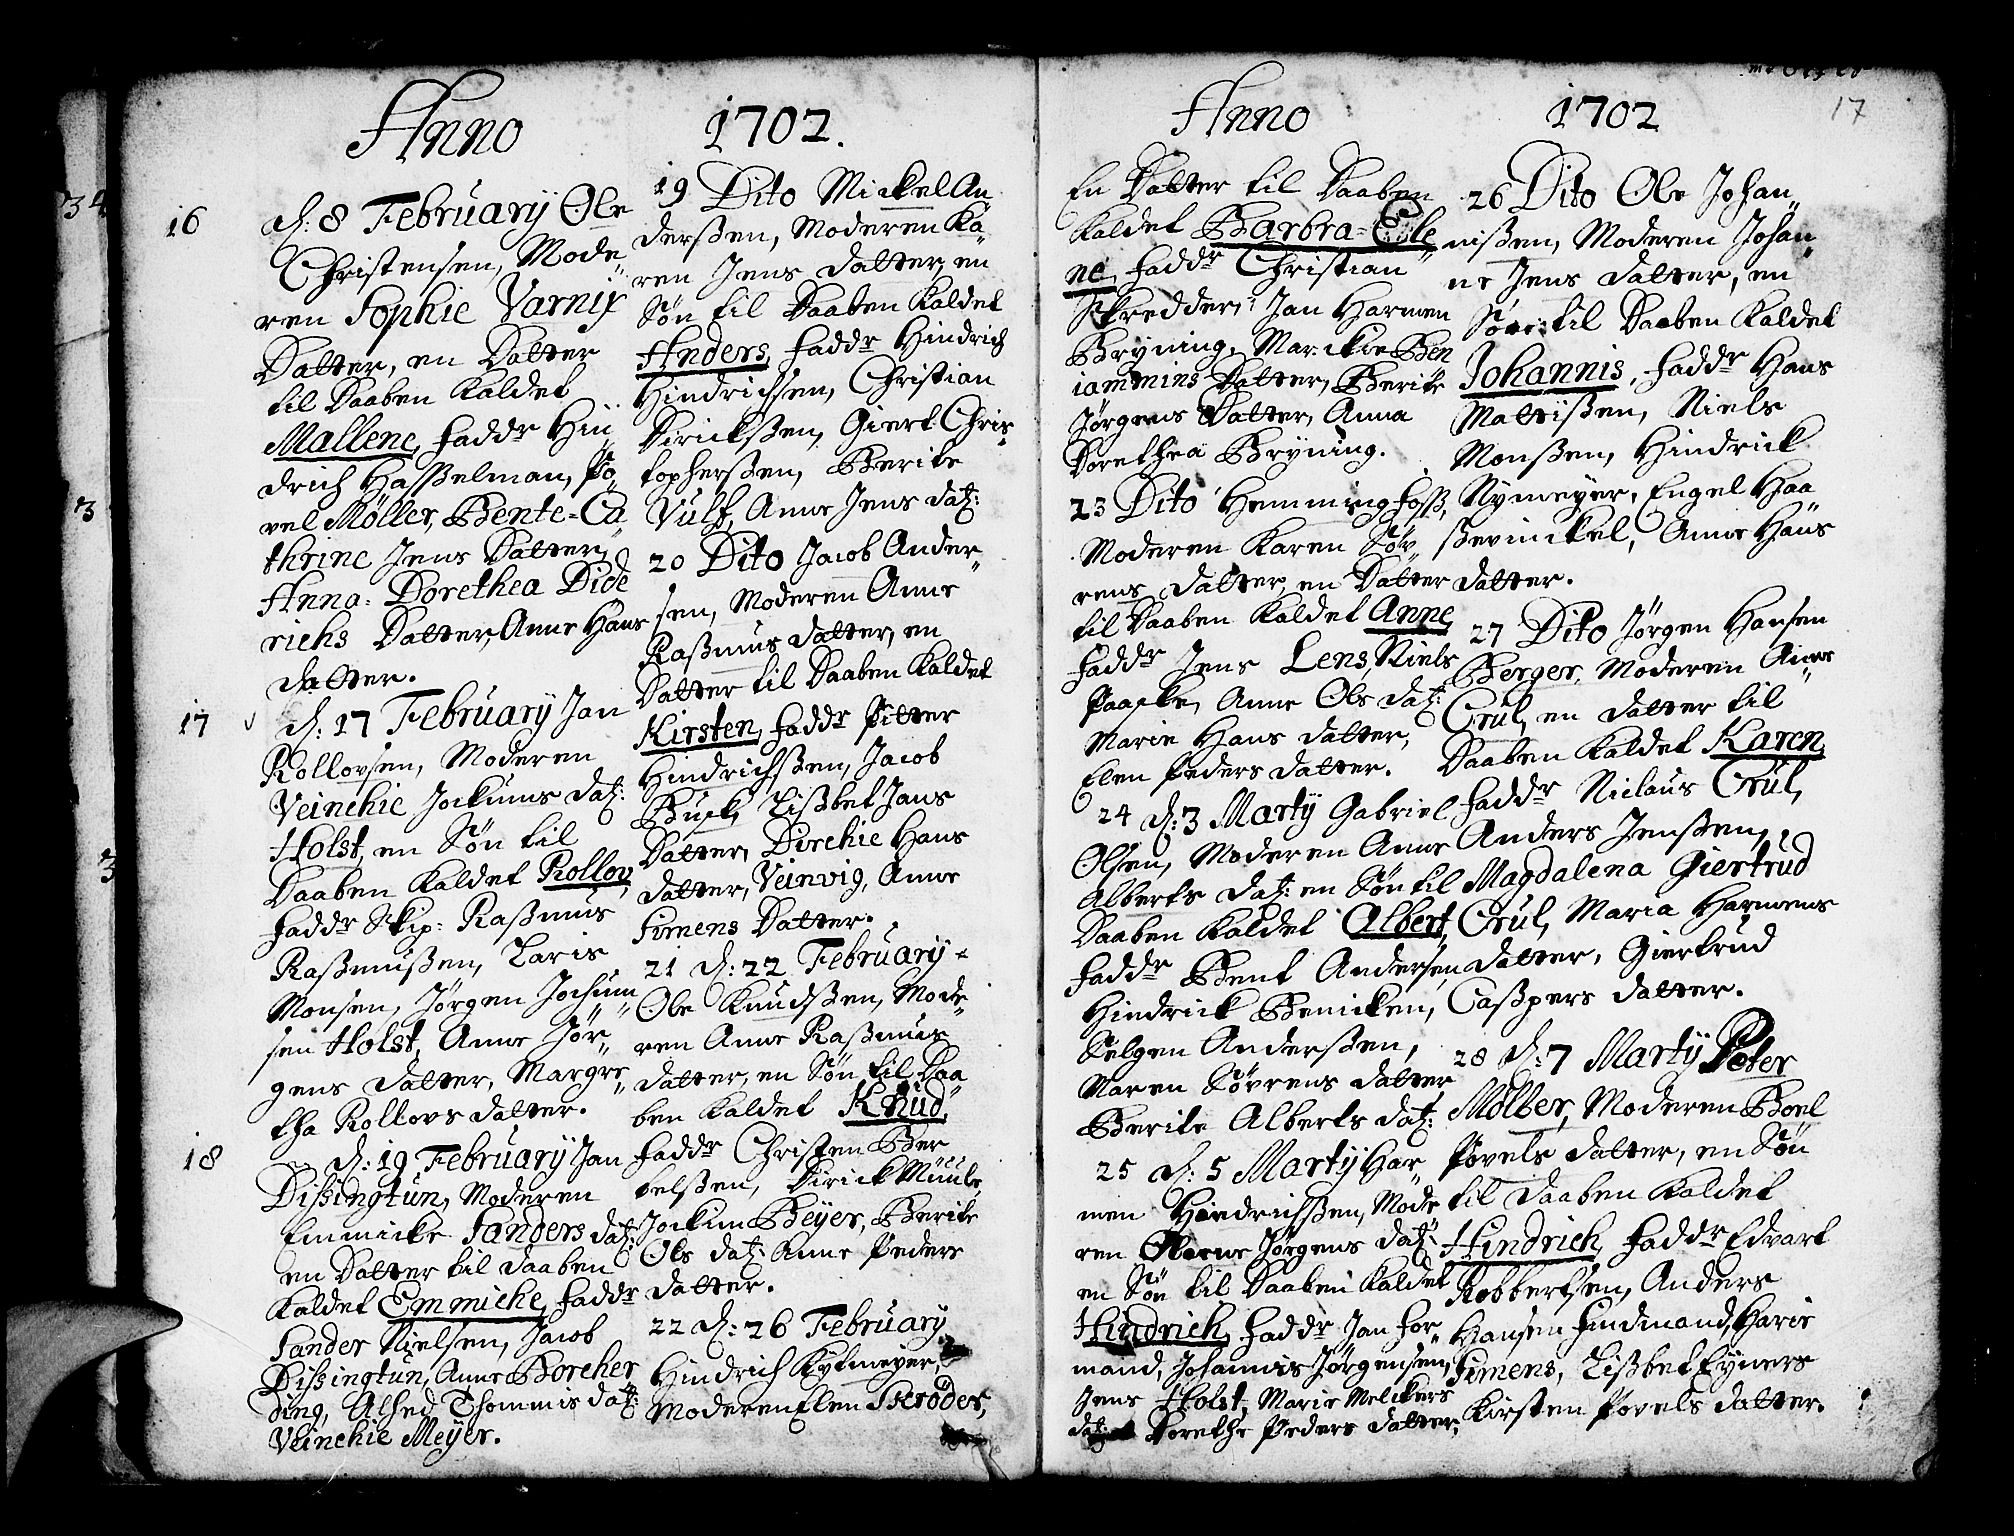 Anno 1702.
16 d: 8 February Ole
Christensen, Mode„
ren Sophie Varnix
Datter, en Datter
til Daaben kaldet
Mallene, faddr Hin„
drich Hasselman, Po„
vel Møller, Bente=Ca„
thrine Jens Datter,
Anna=Dorethea Dide„
richs Datter, Anne Hans
datter.
17 d: 17 February Jan
Rollovsen, Moderen
Veinchie Jockums dat:
Holst, en Søn til
Daaben kaldet Rollov,
faddr Skip: Rasmus
Rasmussen, Laris
Monsen, Jørgen Jochum„
sen Holst, Anne Jør„
gens datter, Margre„
tha Rollovs datter.
18 d: 19 February Jan
Dissingtun, Moderen
Emmicke Sanders dat:
en Datter til daaben
kaldet Emmiche, faddr
Sander Nielsen, Jacob
Dissingtun, Anne Borcher
ding, Alhed Thommis dat:
Veinchie Meyer.
19 Dito Mickel An„
derssen, Moderen Ka„
ren Jens datter, en
Søn til Daaben kaldet
Anders, faddr Hindrich
Hindrichsen, Christian
Diricksen, Giert Chris„
tophersen, Berite
Vulf, Anne Jens dat:
20 Dito Jacob Ander„
sen, Moderen Anne
Rasmus datter, en
Datter til Daaben kaldet
Kirsten, faddr Pitter
Hindrichssen, Jacob
Buck, Lisbet Jans
Datter, Dirchie Hans
datter, Veinvig, Anne
Simens Datter.
21 d: 22 February
Ole Knudssen, Mode„
ren Anne Rasmus
datter, en Søn til Daa„
ben kaldet Knud,
faddr Christen Ber
telssen, Dirick Muule,
Jockim Beyer, Berite
Ols dat: Anne Peders
datter.
22 d: 26 February
Hindrich Kytmeyer,
Moderen Elen Skrøders,
17
Anno 1702
En Datter til Daaben
kaldet Barbra=Ele„
ne, faddr Christian
Skredder, Jan Harmen
Bryning, Marickie Ben
iammins Datter, Berite
Jørgens Datter, Anna
Dorethea Bryning.
23 Dito Hemming Foss,
Moderen Karen Søv„
rens datter, en Datter
til Daaben kaldet Anne,
faddr Jens Lens, Niels
Paaske, Anne Ols dat:
Marie Hans datter,
Elen Peders datter.
24 d: 3 Marty Gabriel
Olsen, Moderen Anne
Alberts dat: en Søn til
Daaben kaldet Albert,
faddr Bent Andersen,
Hindrick Benicken,
Selgen Anderssen,
Maren Søvrens datter
Berite Alberts dat:
25 d: 5 Marty Har„
men Hindrichssen, Mode„
ren Jørgens dat:
en Søn til Daaben kaldet
Hindrich, faddr Jan For„
mand, Johannis Jørgensen,
Jens Holst, Marie Melckers
dat: Dorethe Peders datter,
26 Dito Ole Johan„
nissen, Moderen Johan„
ne Jens datter, en
Søn til Daaben kaldet
Johannis, faddr Hans
Mattissen, Niels
Monssen, Hindrick
Nymeyer, Engel Haa
ssevinckel, Anne Hans
datter.
27 Dito Jørgen Hansen
Berger, Moderen Anne
Crul, en datter til
Daaben kaldet Karen,
faddr Niclaus Crul,
Anders Jenssen,
Magdalena Giertrud
Crul, Maria Harmens
datter, Giertrud
Caspers datter.
28 d: 7 Marty Peter
Møller, Moderen Boel
Povels datter, en Søn
til daaben kaldet
Hindrich, faddr Edvart
Robbertsen, Anders
Hansen Findmand, Haris
Simens, Lisbet Eyners
Kirsten Povels datter.